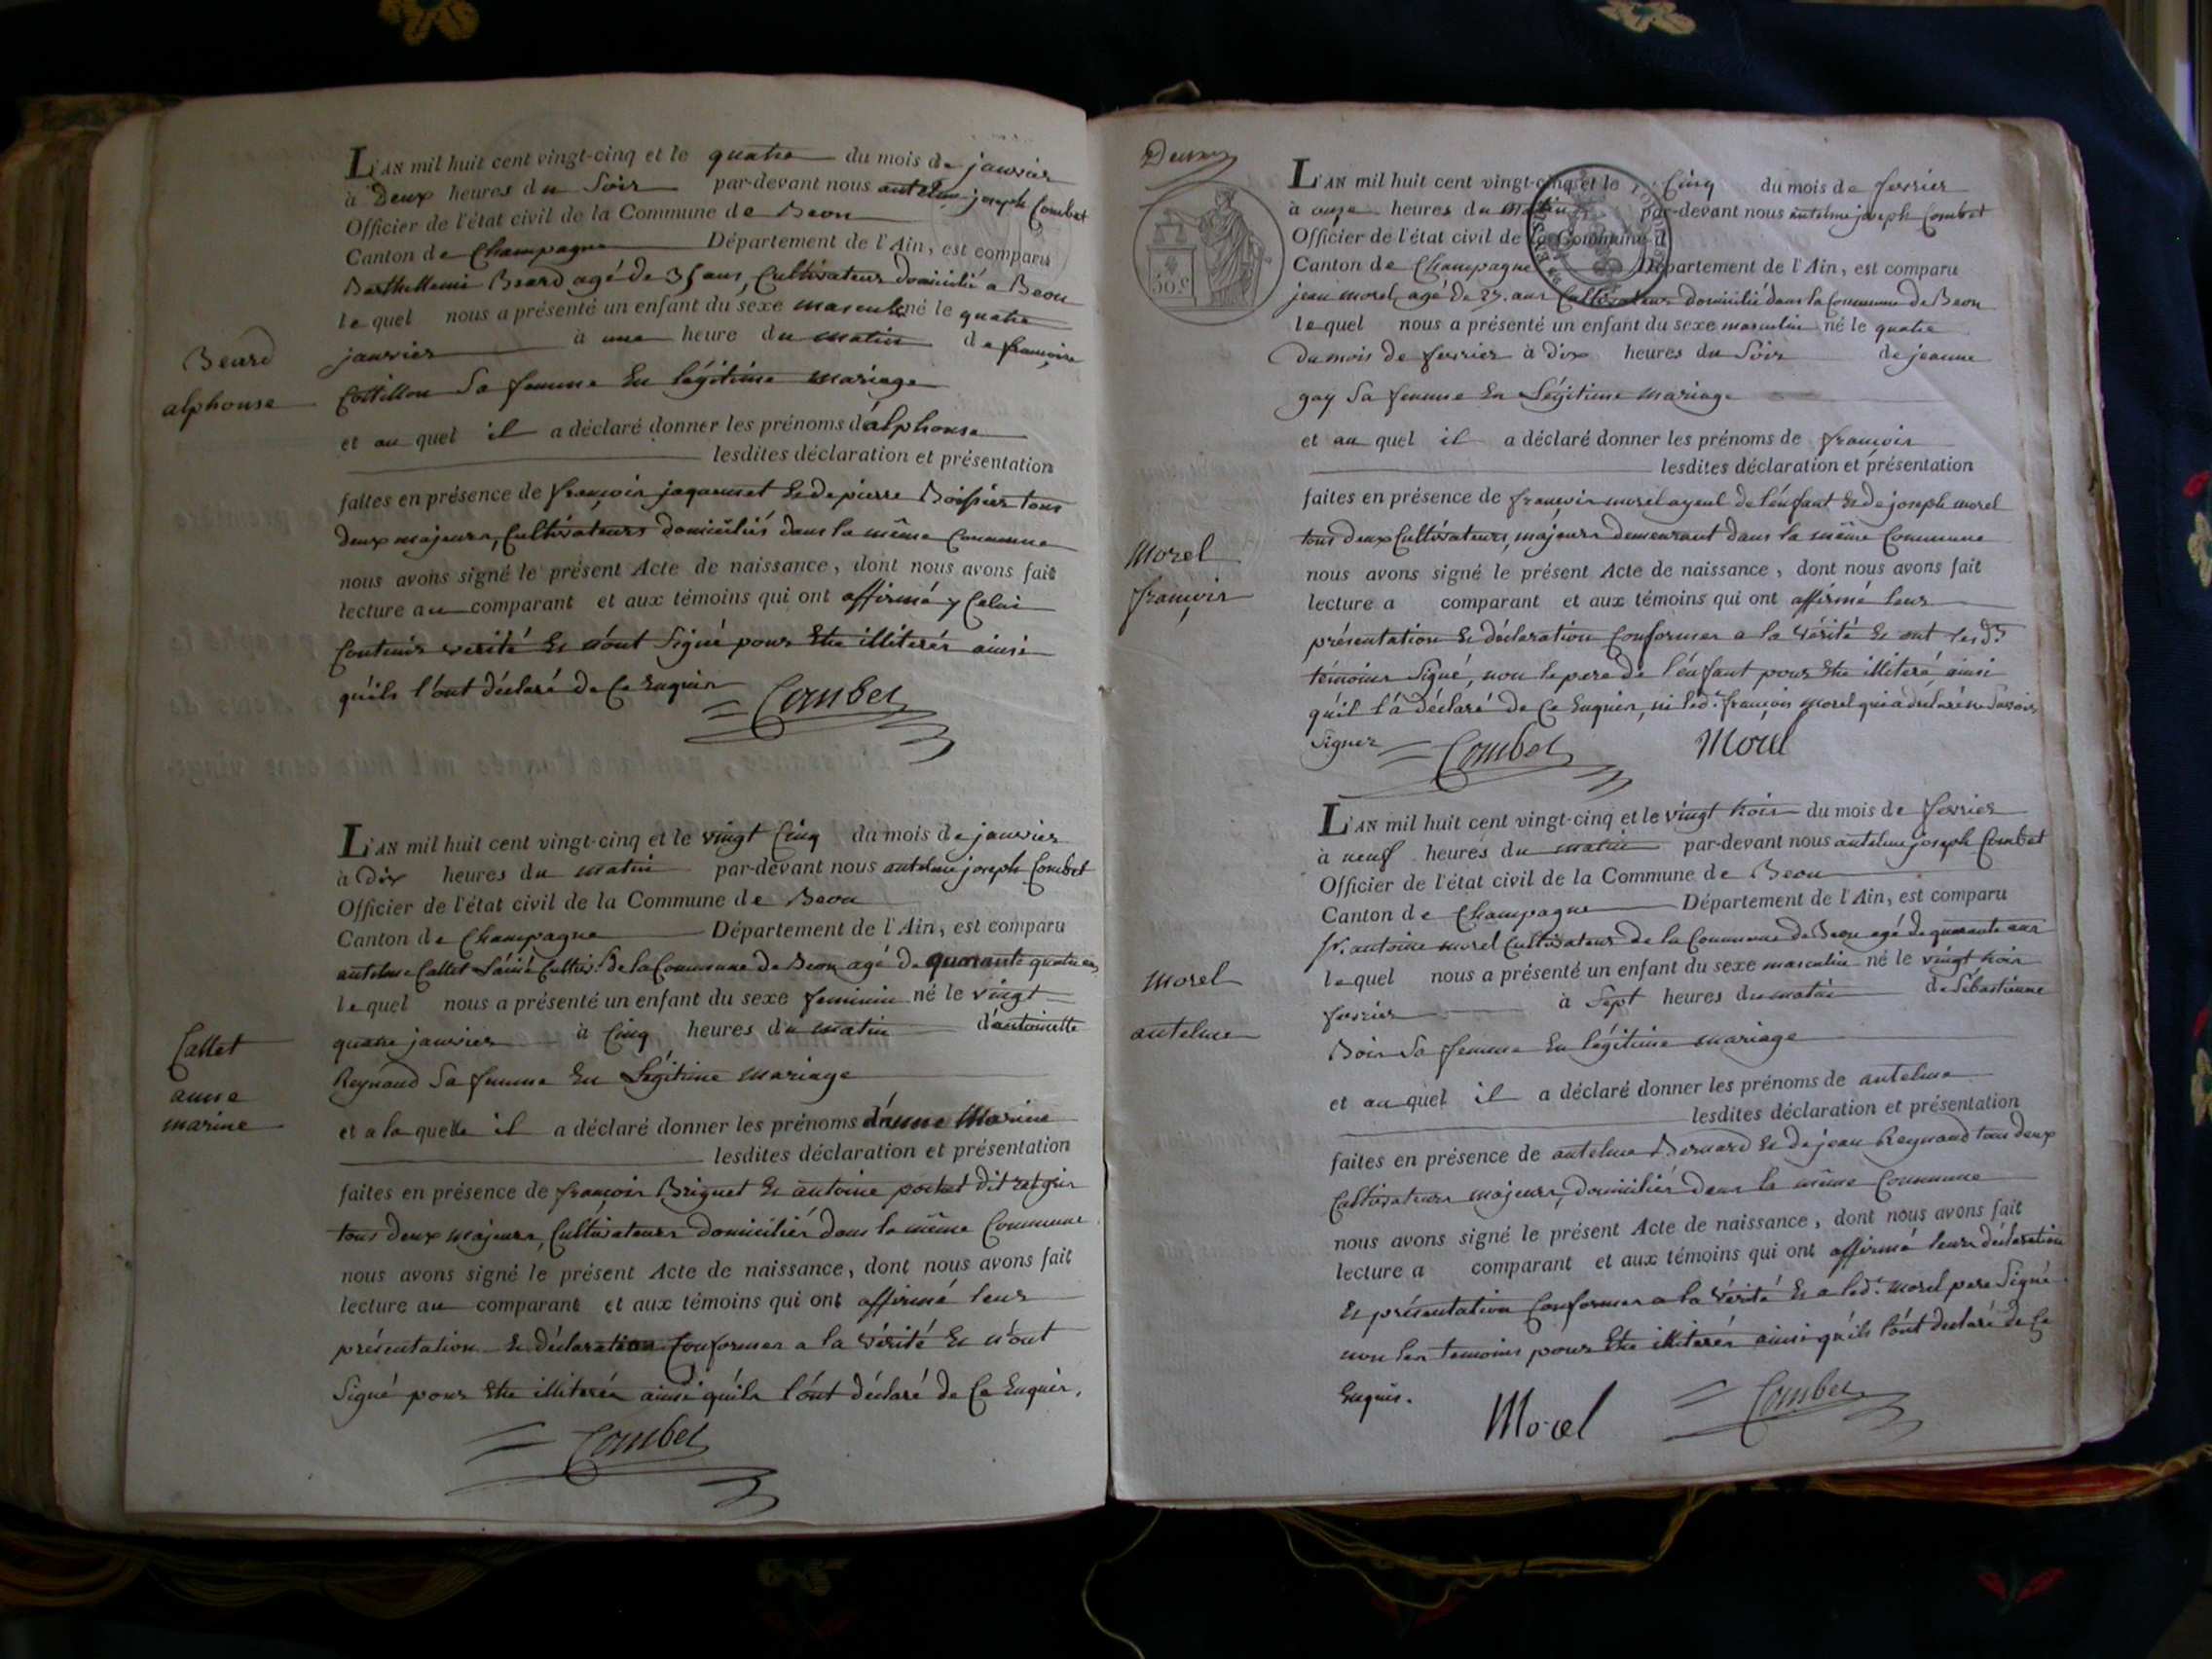 L'AN mil huit cent vingt-cinq et le quatre du mois de janvier
à Deux heures du Soir par-devant nous antelme joseph Combet
Officier de l'état civil de la Commune de Beon
Canton de Champagne Département de l'Ain, est comparu
Barthellemi Beard agé de 35 ans, Cultivateur domicilié a Beon
le quel nous a présenté un enfant du sexe masculin né le quatre
janvier à une heure du matin de françoise
Cottillon Sa femme En légitime mariage
et au quel il a déclaré donner les prénoms d'alphonse
lesdites déclaration et présentation
faites en présence de françois jaquemet Et de pierre Boissier tous
deux majeurs, Cultivateurs domiciliés dans la même Commune
nous avons signé le présent Acte de naissance, dont nous avons fait
lecture au comparant et aux témoins qui ont affirmé y Celui
Contenir verité Et n'ont Signé pour Etre illiterés ainsi
qu'ils l'ont déclaré de Ce Enquis
Combet
Beard
alphonse
L'AN mil huit cent vingt-cinq et le vingt Cinq du mois de janvier
à Dix heures du matin par-devant nous antelme joseph Combet
Officier de l'état civil de la Commune de Beon
Canton de Champagne Département de l'Ain, est comparu
antelme Callet L'ainé Cultiv. de la Commune de Beon agé de quarante quatre ans
le quel nous a présenté un enfant du sexe feminin né le vingt
quatre janvier à Cinq heures du matin d'antoinette
Reynaud Sa femme En Légitime mariage
et a la quelle il a déclaré donner les prénoms d'anne Marine
lesdites déclaration et présentation
faites en présence de françois Briguet Et antoine pochet dit
tous deux majeurs, Cultivateurs domiciliés dans la même Commune
nous avons signé le présent Acte de naissance, dont nous avons fait
lecture au comparant et aux témoins qui ont affirmé leur
présentation Et déclaration Conformes a la vérité Et n'ont
Signé pour Etre illiterés ainsi qu'ils l'ont déclaré de Ce Enquis.
Combet
Callet
anne
marine
Deux
50c
L'AN mil huit cent vingt-cinq et le Cinq du mois de fevrier
à onze heures du matin par-devant nous antelme joseph Combet
Officier de l'état civil de la Commune d
Canton de Champagne Département de l'Ain, est comparu
jean morel, agé de 25. ans Cultivateur domicilié dans la Commune de Beon
le quel nous a présenté un enfant du sexe masculin né le quatre
du mois de fevrier à Dix heures du Soir de jeanne
gay Sa femme En Légitime Mariage
et au quel il a déclaré donner les prénoms de françois
lesdites déclaration et présentation
faites en présence de françois morel ayeul de l'enfant Et de joseph morel
tous deux Cultivateurs, majeurs demeurant dans la même Commune
nous avons signé le présent Acte de naissance, dont nous avons fait
lecture a comparant et aux témoins qui ont affirmé leur
présentation Et déclaration Conformes a la vérité Et ont les d.ts
témoins Signé, non le pere de l'enfant pour Etre illiteré, ainsi
qu'il l'a déclaré de Ce Enquis, ni led. françois morel qui a déclaré ne Savoir
Signer
Combet Morel
Morel
françois
L'AN mil huit cent vingt-cinq et le vingt trois du mois de fevrier
à neuf heures du matin par-devant nous antelme joseph Combet
Officier de l'état civil de la Commune de Beon
Canton de Champagne Département de l'Ain, est comparu
Sr. antoine morel Cultivateur de la Commune de Beon agé de quarante ans
le quel nous a présenté un enfant du sexe masculin né le vingt trois
fevrier à Sept heures du matin de Sébastienne
Bois Sa femme En légitime mariage
et au quel il a déclaré donner les prénoms de antelme
lesdites déclaration et présentation
faites en présence de antelme Bernard Et de jean Reynaud tous deux
Cultivateurs majeurs, domiciliés dans la même Commune
nous avons signé le présent Acte de naissance, dont nous avons fait
lecture a comparant et aux témoins qui ont affirmé leurs déclaration
Et présentation Conformes a la Vérité Et a led. Morel pere Signé
non les temoins pour Etre illiterés ainsi qu'ils l'ont declaré de Ce
Enquis.
Morel Combet
Morel
antelme